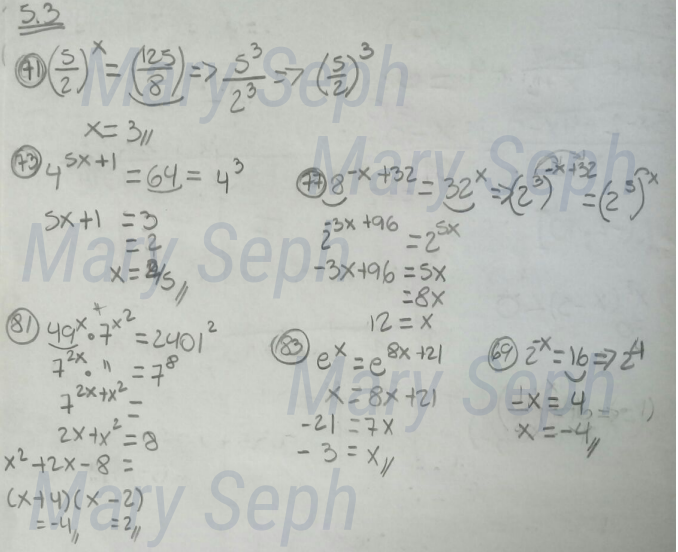 5.3
71 (5/2)^x = (125/8) => 5^3/2^3 => (5/2)^3
x = 3//
73 4^(5x+1) = 64 = 4^3
5x+1 = 3
= 2
x = 2/5//
77 8^(-x+32) = 32^x => (2^3)^(-x+32) = (2^5)^x
2^(-3x+96) = 2^(5x)
-3x+96 = 5x
= 8x
12 = x
81 49^x · 7^(x^2) = 2401^2
7^(2x) · " = 7^8
7^(2x+x^2) =
2x+x^2 = 8
x^2+2x-8 =
(x+4)(x-2)
= -4// = 2//
83 e^x = e^(8x+21)
x = 8x+21
-21 = 7x
-3 = x//
69 2^(-x) = 16 => 2^4
-x = 4
x = -4//
Mary Seph
Mary Seph
Mary Seph
Mary Seph
Mary Seph